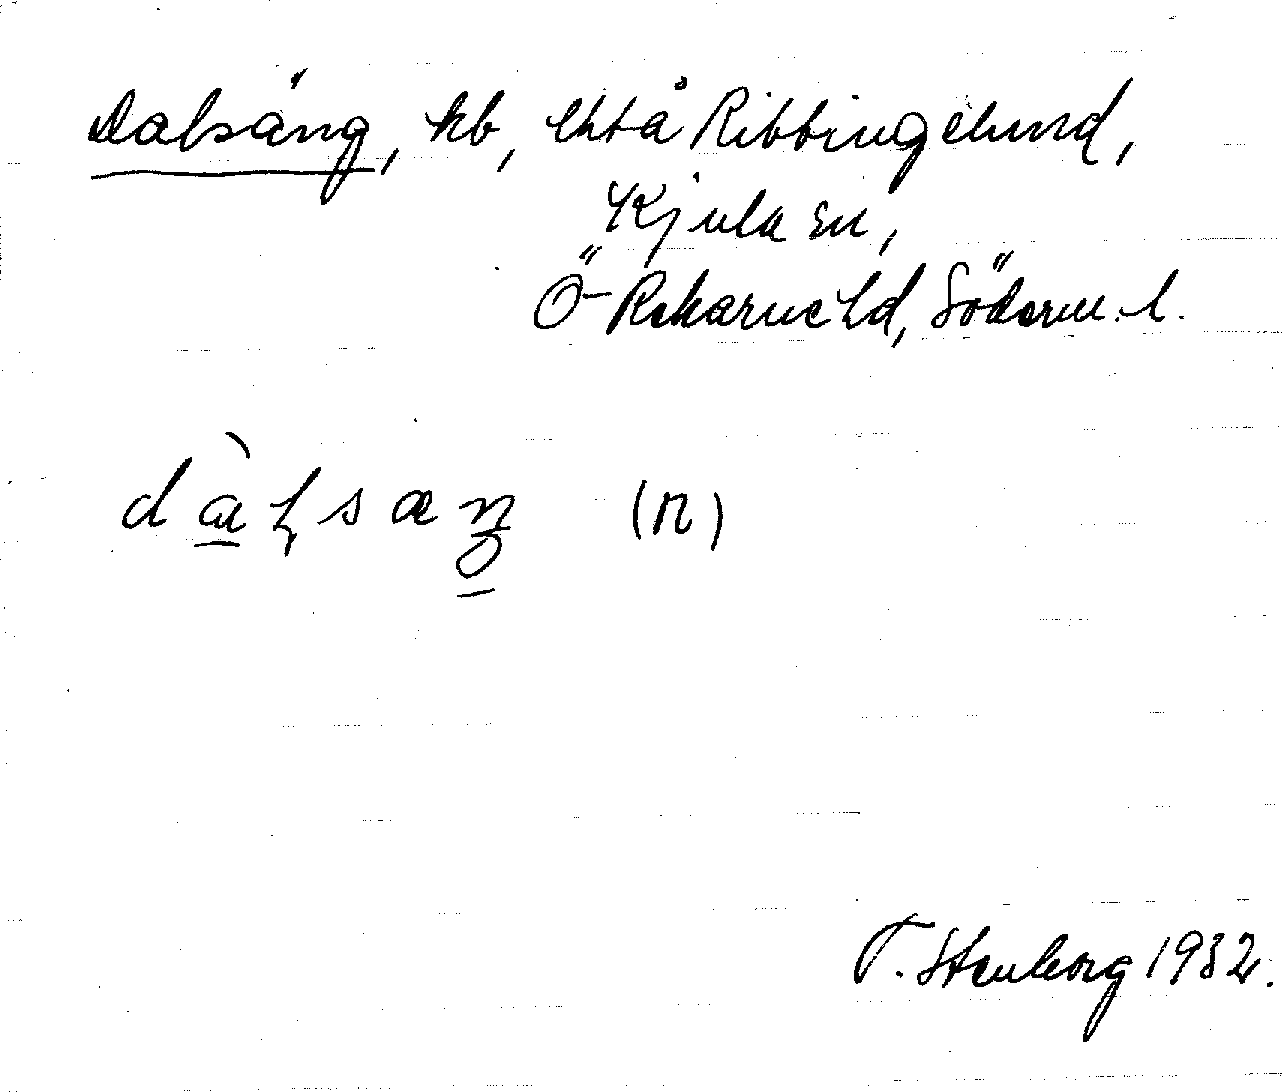 Dalsäng, hb, u Ribbingelund,
Kjula sn,
Ö-Rekarne hd, Söderm. l.
dalsæŋ (n)
T. Stenborg 1932.